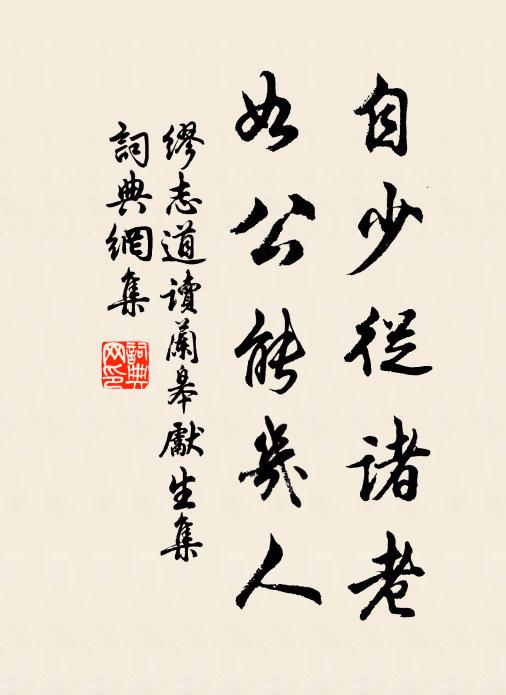 自少從諸老
如公能幾人
繆志道讀蘭皋獻生集
詞典網集
詞典網印